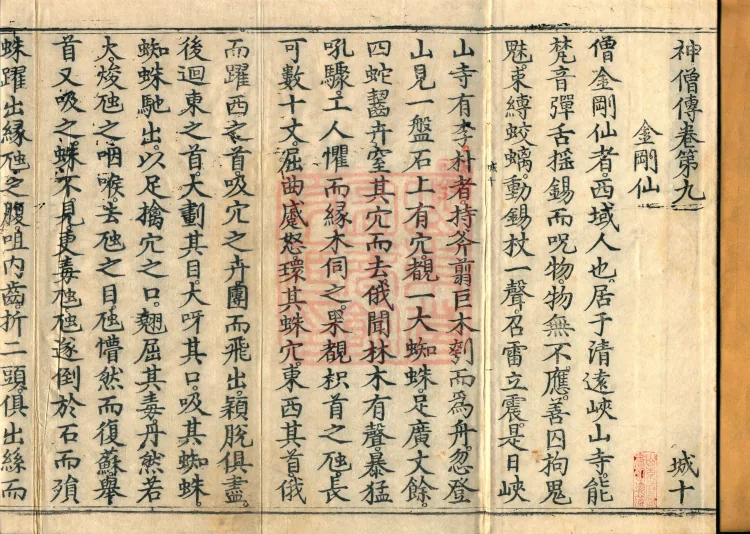 神僧傳卷第九 城十
金剛仙
僧金剛仙者。西域人也。居于清遠峽山寺。能
梵音彈舌搖錫而呪物。物無不應。善囚拘鬼
魅。束縛蛟螭。動錫杖一聲。召雷立震。是日峽
山寺有李朴者。持斧翦巨木刳而為舟。忽登
山見一盤石上有穴。覩一大蜘蛛。足廣丈餘。
四蛇齧卉窒其穴而去。俄聞林木有聲。暴猛
吼驟。工人懼而緣木伺之。果覩枳首之虺。長
可數十丈。屈曲蹙怒。環其蛛穴。東西其首俄
而躍西之首。吸穴之卉團而飛出。穎脫俱盡。
後迴東之首。大劃其目。大呀其口。吸其蜘蛛。
蜘蛛馳出。以足擒穴之口。翹屈其毒丹然若
大。焌虺之咽喉。去虺之目。虺懵然而復蘇。舉
首又吸之。蛛不見。更毒虺。虺遂倒於石而殞
蛛躍出。緣虺之腹。咀內齒。折二頭。俱出絲而
城十